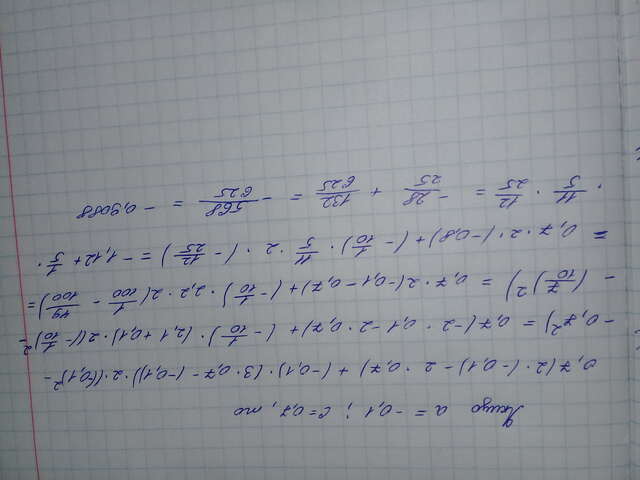 Якщо a = -0,1 ; c = 0,7, то
0,7(2·(-0,1) - 2·0,7) + (-0,1)·(3·0,7 - (-0,1))·2·((-0,1)² -
- 0,7²) = 0,7(-2·0,1 - 2·0,7) + (-1/10)·(2,1 + 0,1)·2((-1/10)² -
- (7/10)²) = 0,7·2(-0,1 - 0,7) + (-1/10)·2,2·2(1/100 - 49/100) =
= 0,7·2·(-0,8) + (-1/10)·11/5·2·(-12/25) = -1,12 + 1/5·
·11/5·12/25 = -28/25 + 132/625 = -568/625 = -0,9088